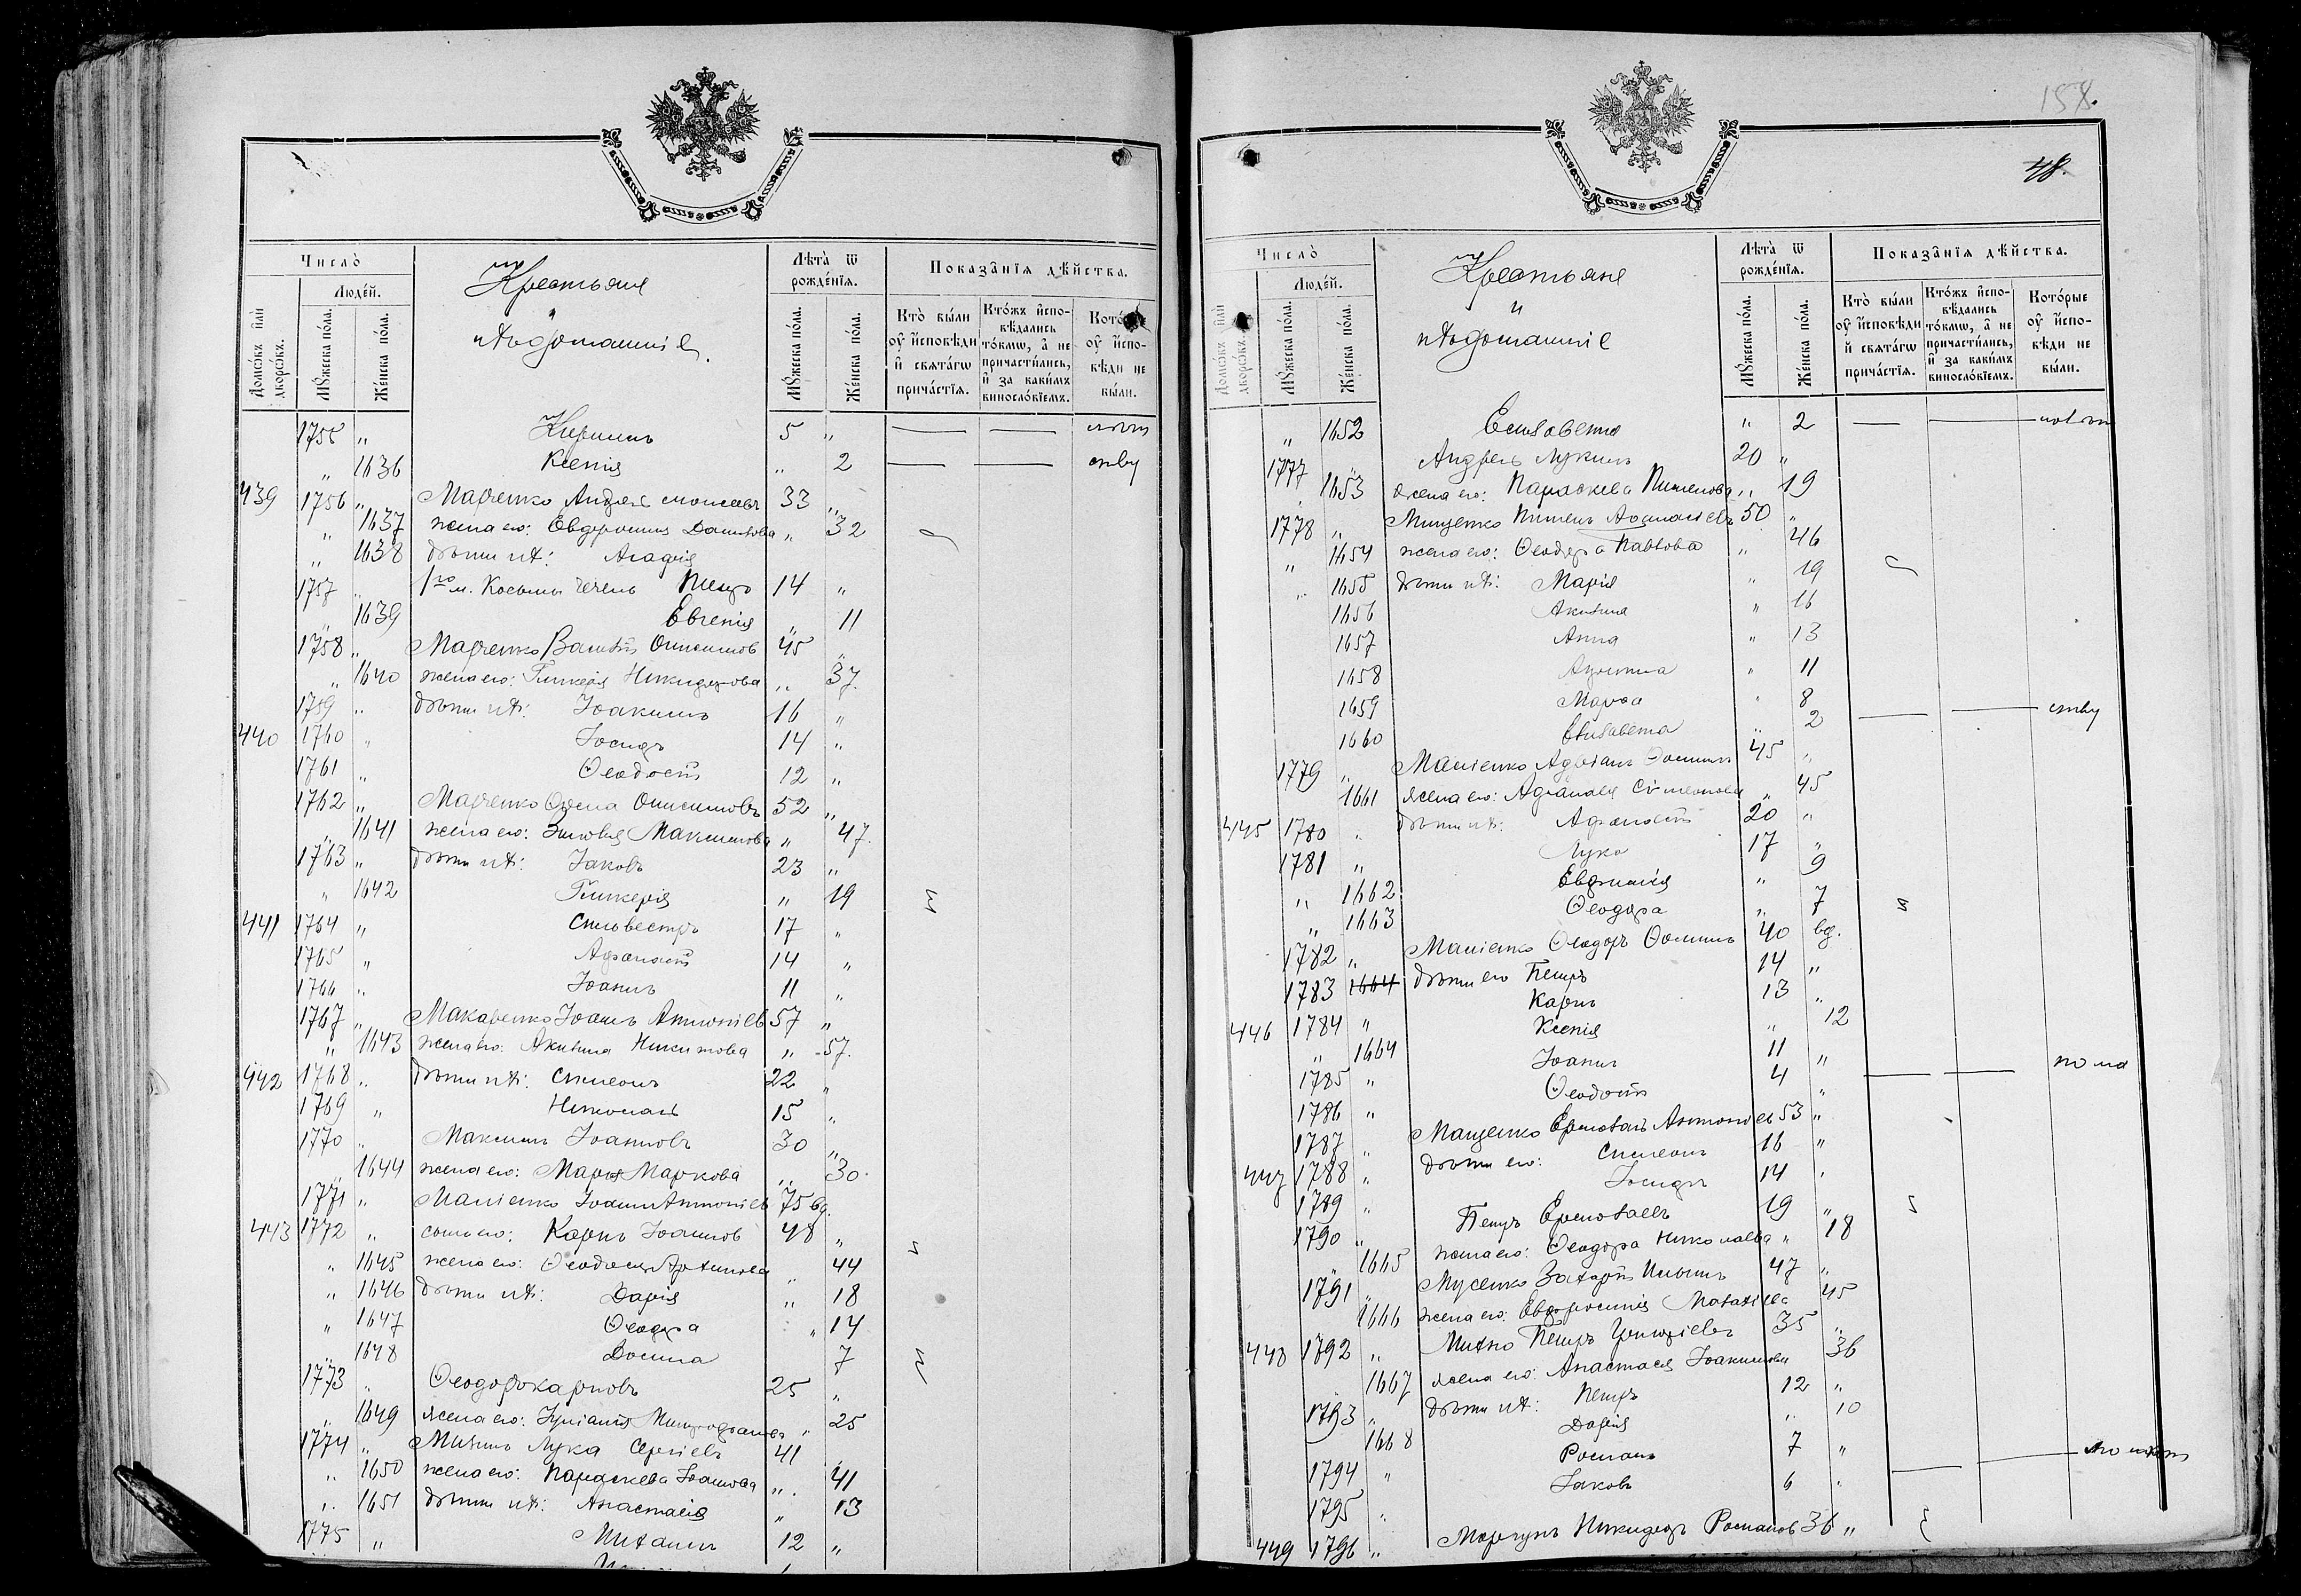 Число̀
Людéй.
Домѡ́въ и҆лѝ дворѡ́въ.
Мꙋ́жеска пóла.
Жéнска пóла.
Крестьяне
и
ихъ домашніе.
Лѣ́та ѿ рождéнїѧ.
Мꙋ́жеска пóла.
Жéнска пóла.
Показа̑нїѧ дѣ́йства.
Кто̀ бы́ли оу҆ и҆сповѣди и҆ свѧта́гѡ прича́стїѧ.
Кто́жъ и҆спо-вѣдались то́кмѡ, а҆ не причасти́лись, и҆ за каки́мъ винослóвїемъ.
Кото́рые оу҆ и҆спо-вѣди не бы́ли.
1755 „ Кириллъ 5 „ — —
„ 1636 Ксенія „ 2 — —
439 1756 „ Марченко Андрей 33 „
„ 1637 жена его: Евфросинія Данилова „ 32
„ 1638 дѣти ихъ: Агафія
1757 „ 14 „
1639 Евгенія „ 11
1758 „ Марченко Василій Онисимовъ 45 „
„ 1640 жена его: Гликерія Никифорова „ 37.
1759 „ дѣти ихъ: Іоакимъ 16 „
440 1760 „ Іосифъ 14 „
1761 „ Ѳеодосій 12 „
1762 „ Марченко Ѳома Онисимовъ 52 „
„ 1641 жена его: Зиновія Максимова „ 47.
1763 „ дѣти ихъ: Іаковъ 23 „
„ 1642 Гликерія „ 19
441 1764 „ Сильвестръ 17 „
1765 „ Афанасій 14 „
1766 „ Іоаннъ 11 „
1767 „ Макаренко Іоаннъ Антоніевъ 57 „
„ 1643 жена его: Акилина Никитова „ 57.
442 1768 „ дѣти ихъ: Симеонъ 22 „
1769 „ Николай 15 „
1770 „ Максимъ Іоанновъ 30 „
„ 1644 жена его: Марія Маркова „ 30.
1771 „ Маціенко Іоаннъ Антоніевъ 75 вд.
443 1772 „ сынъ его: Карпъ Іоанновъ 48 „
„ 1645 жена его: Ѳеодосія „ 44
„ 1646 дѣти ихъ: Дарія „ 18
„ 1647 Ѳеодора „ 14
„ 1648 Домна 7
1773 „ Ѳеодоръ Карповъ 25 „
„ 1649 жена его: Іуліанія Митрофанова „ 25
1774 „ Лука Сергіевъ 41 „
„ 1650 жена его: Параскева Іоаннова „ 41
„ 1651 дѣти ихъ: Анастасія „ 13
1775 „ Михаилъ 12 „
158.
48.
Число̀
Людéй.
Домѡ́въ и҆лѝ дворѡ́въ.
Мꙋ́жеска пóла.
Жéнска пóла.
Крестьяне
и
ихъ домашніе
Лѣ́та ѿ рождéнїѧ.
Мꙋ́жеска пóла.
Жéнска пóла.
Показа̑нїѧ дѣ́йства.
Кто̀ бы́ли оу҆ и҆сповѣди и҆ свѧта́гѡ прича́стїѧ.
Кто́жъ и҆спо-вѣдались то́кмѡ, а҆ не причасти́лись, и҆ за каки́мъ винослóвїемъ.
Кото́рые оу҆ и҆спо-вѣди не бы́ли.
„ 1652 Елисавета „ 2 — —
1777 „ Андрей Лукинъ 20 „
1653 жена его: Параскева Пименова „ 19
1778 „ Мищенко Пименъ Афанасіевъ 50 „
„ 1654 жена его: Ѳеодора Павлова „ 46
„ 1655 дѣти ихъ: Марія „ 19
1656 Акилина „ 16
1657 Анна „ 13
1658 „ 11
1659 Марѳа „ 8
1660 Елисавета „ 2 — —
1779 „ Маціенко Адріанъ Ѳоминъ 45 „
1661 жена его: Симеонова „ 45
445 1780 „ дѣти ихъ: Афанасій 20 „
1781 „ Лука 17 „
„ 1662 Евфимія „ 9
„ 1663 Ѳеодора „ 7
1782 „ Маціенко Ѳеодоръ Ѳоминъ 40 вд.
1783 1664 дѣти его Петръ 14 „
446 1784 „ Карпъ 13 „
„ 1664 Ксенія „ 12
1785 „ Іоаннъ 11 „
1786 „ Ѳеодосій 4 „ — —
1787 „ Мащенко Ермолай Антоніевъ 53 „
447 1788 „ дѣти его: Симеонъ 16 „
1789 „ Іосифъ 14 „
1790 „ Петръ Ермолаевъ 19 „
„ 1665 жена его: Ѳеодора Николаева „ 18
1791 „ Мусенко Захарій Ильинъ 47 „
1666 жена его: Евфросинія „ 45
448 1792 „ Михно Петръ Григоріевъ 35 „
1667 жена его: Анастасія Іоакимова 36
1793 „ дѣти ихъ: Петръ 12 „
1668 Дарія „ 10
1794 „ Романъ 7 „
1795 „ Іаковъ 6 „ — —
449 1796 „ Моргунъ Никифоръ Романовъ 36 „